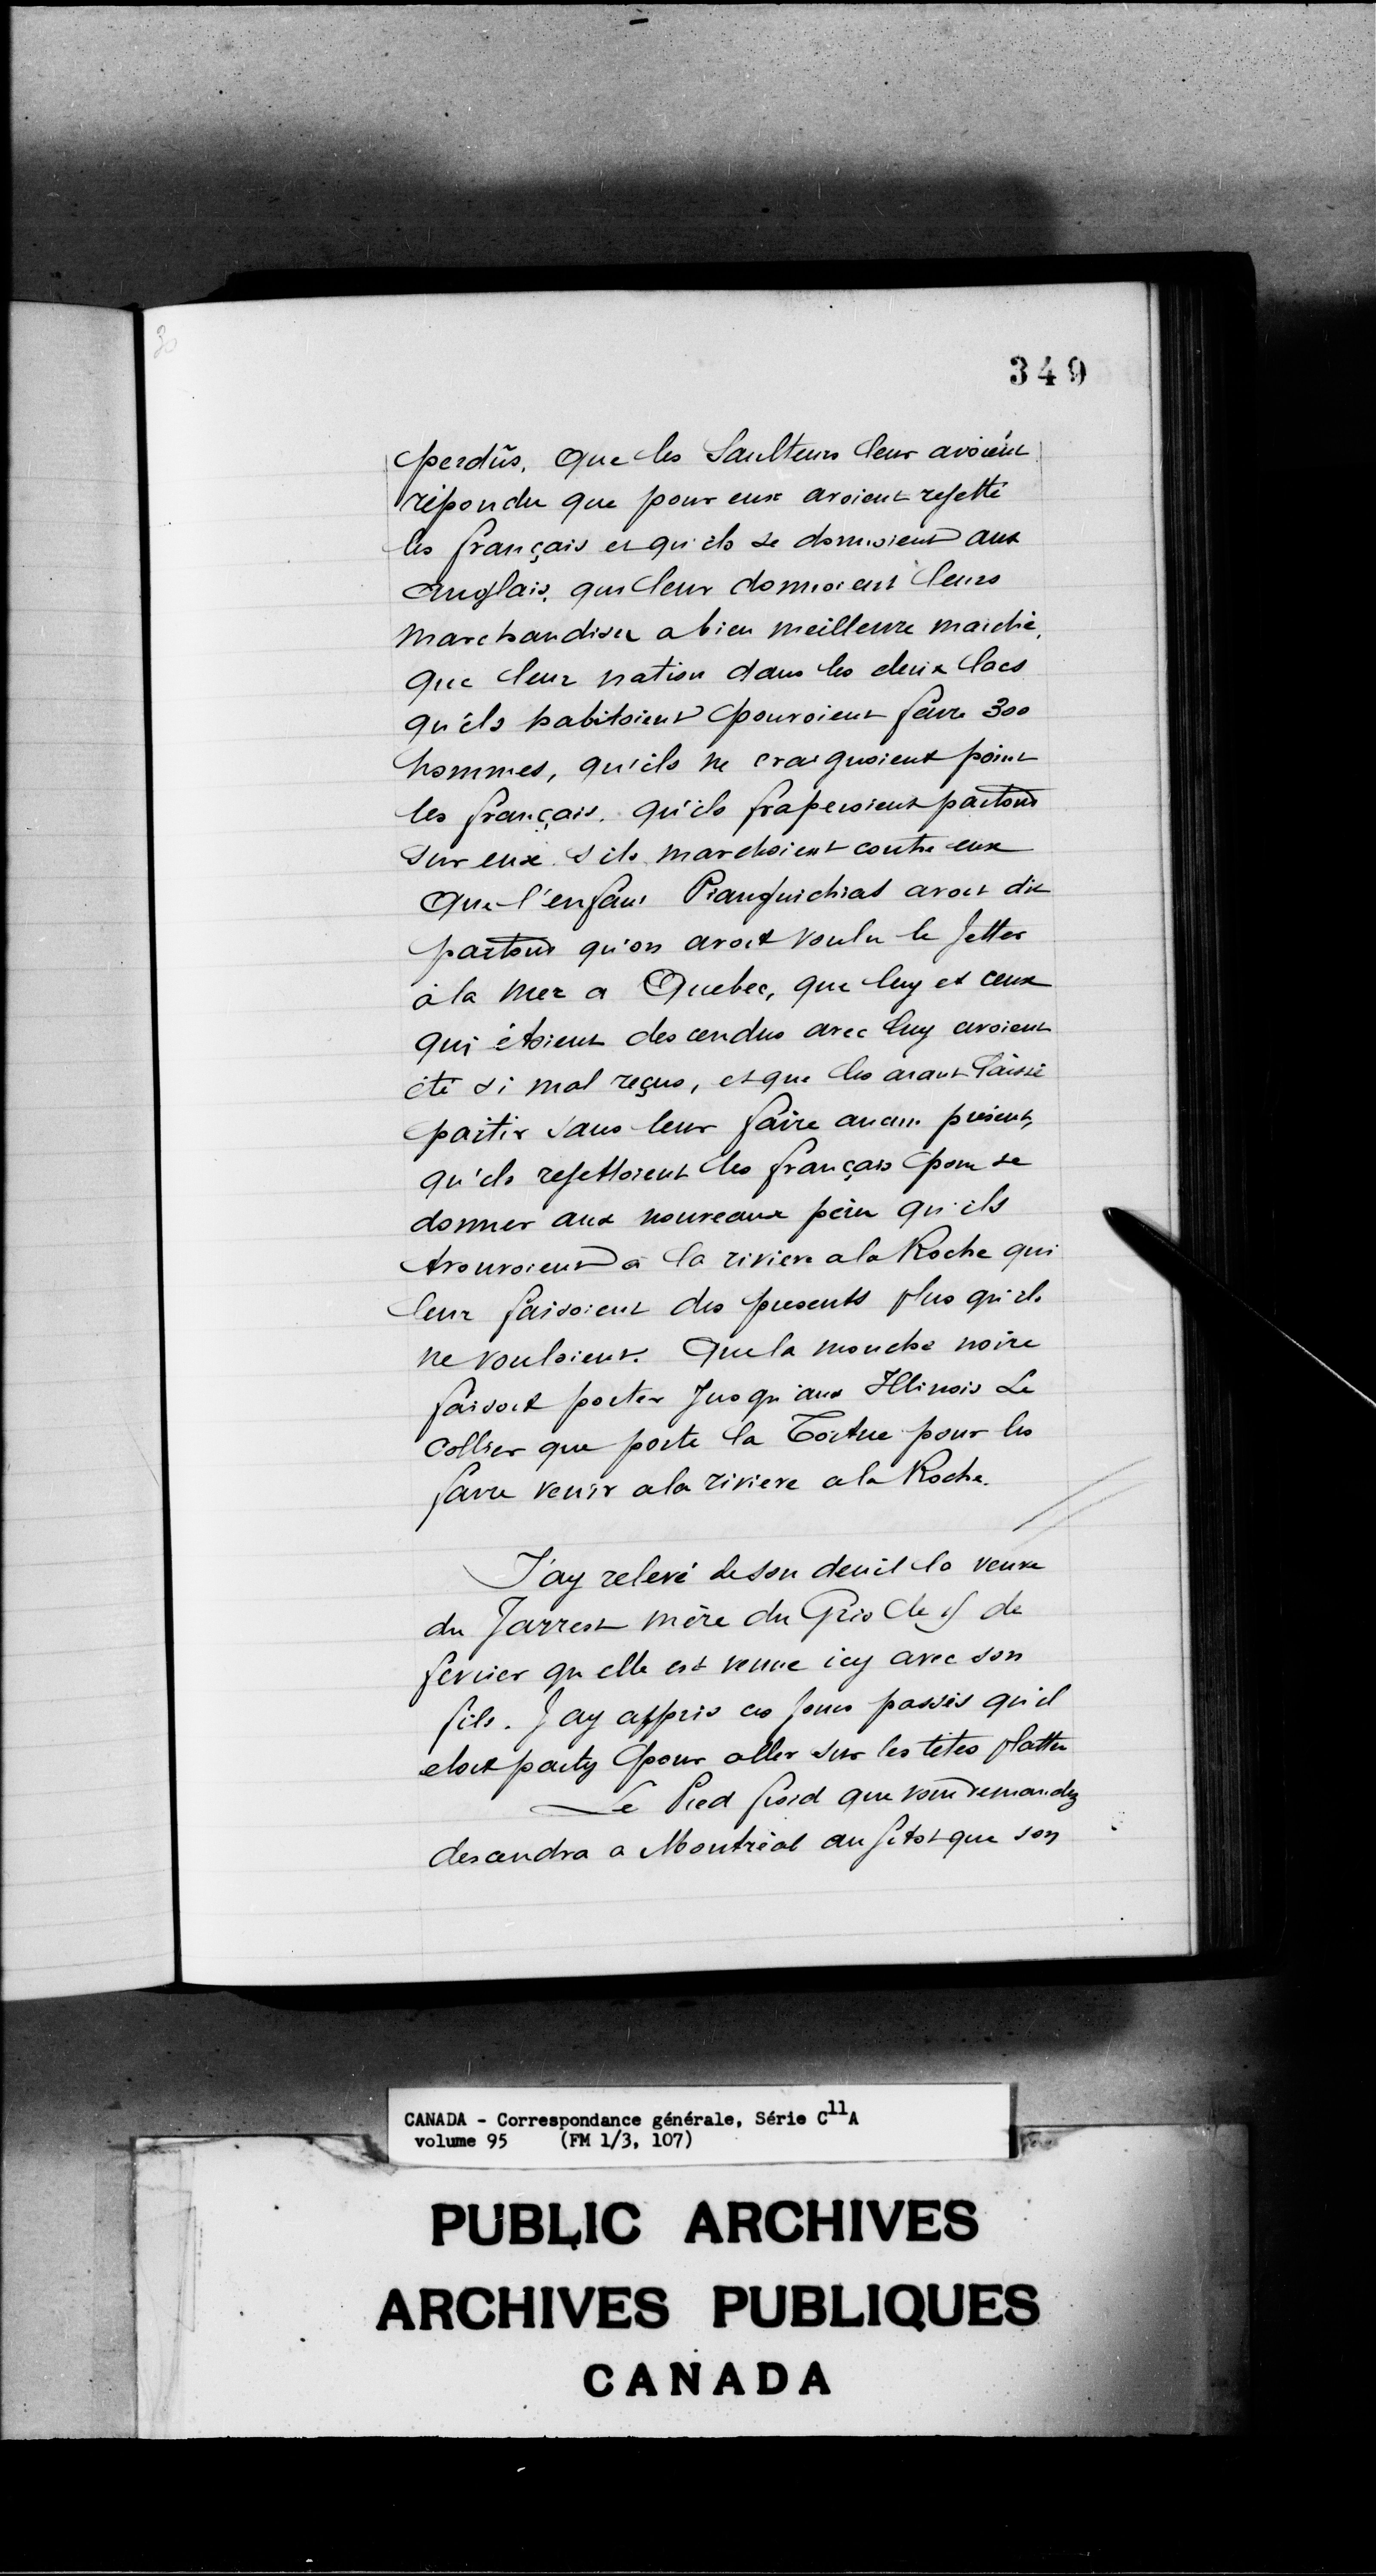 349
perdûs. Que les Saulteurs leur avoient
répondu que pour eux avoient rejetté
les français et qu'ils se donnoient aux
Anglais, qui leur donnoient leurs
marchandises a bien meilleure marché,
que leur nation dans les deux lacs
qu'ils habitoient pouvoient faire 300
hommes, qu'ils ne craignoient point
les français. qu'ils fraperoient partout
sur eux s'ils marchoient contre eux
Que l'enfant Pianguichias avoit dit
partout qu'on avoit voulu le jetter
à la mer a Quebec, que luy et ceux
qui étoient descendus avec luy avoient
été si mal reçus, et que les aiant laissé
partir sans leur faire aucun présent,
qu'ils rejettoient les français pour se
donner aux nouveaux père qu'ils
trouvoient à la riviere a la Roche qui
leur faisoient des presents plus qu'ils
ne vouloient. Que la mouche noire
faisoit porter jusqu'aux Illinois Le
collier que porte la Tortue pour les
faire venir a la riviere a la Roche.
J'ay relevé de son deuil la veuve
du Jarret mère du Gris le de
fevrier qu elle est venue icy avec son
fils. J ay appris ces jours passés qu'il
etoit party pour aller sur les têtes plattes
Le Pied froid que vous demandez
descendra a Montréal ausitot que son
CANADA - Correspondance générale, Série C11A
volume 95 (FM 1/3, 107)
PUBLIC ARCHIVES
ARCHIVES PUBLIQUES
CANADA